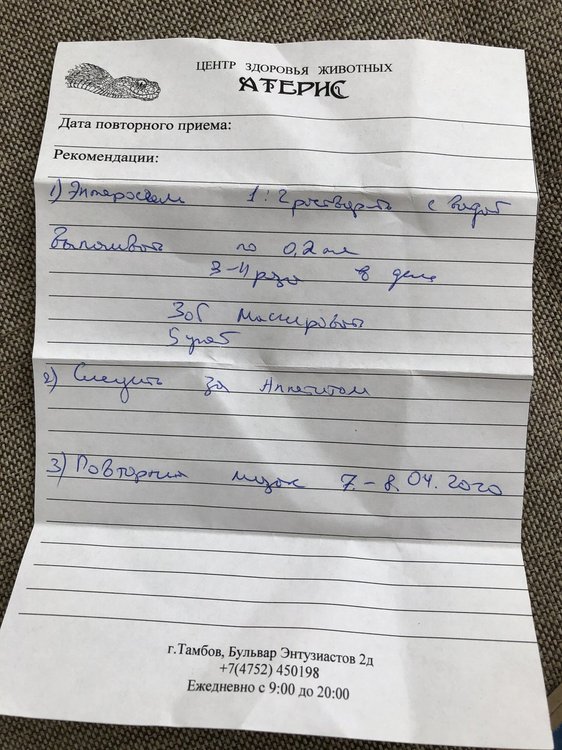 ЦЕНТР ЗДОРОВЬЯ ЖИВОТНЫХ
АТЕРИС
Дата повторного приема:
Рекомендации:
1) Энтеросгель 1:2 растворить с водой
Выпаивать по 0,2 мл
3-4 раза в день
Зоб массировать
5 дней
2) Следить за Аппетитом
3) Повторный мазок 7.-8.04.2020
г.Тамбов, Бульвар Энтузиастов 2д
+7(4752) 450198
Ежедневно с 9:00 до 20:00